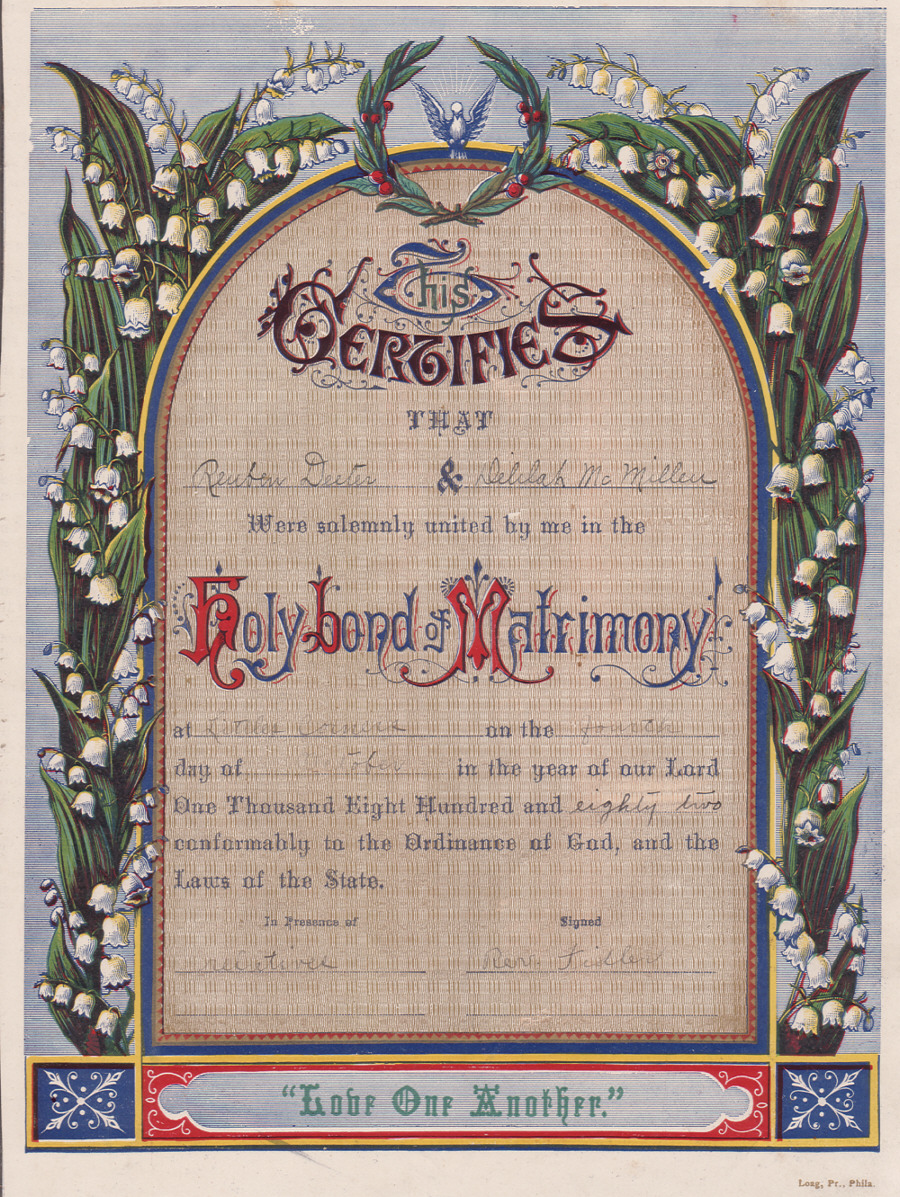 This
Certifies
THAT
Reuben Deeter & Delilah McMillen
Were solemnly united by me in the
Holy bond of Matrimony!
at on the fourth
day of in the year of our Lord
One Thousand Eight Hundred and eighty two
conformably to the Ordinance of God, and the
Laws of the State.
In Presence of Signed
relatives Rev.
"Love One Another."
Long, Pr., Phila.